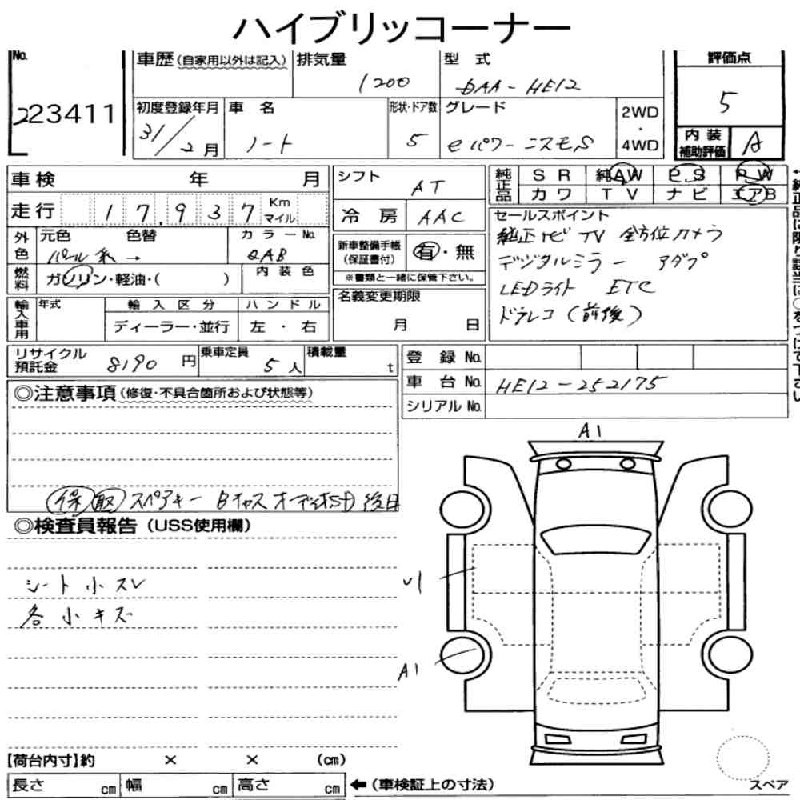 ハイブリッコーナー
No. 車歴 (自家用以外は記入) 排気量 型式 評価点
1200 DAA-HE12 5
223411 初度登録年月 車名 形状・ドア数 グレード 2WD・4WD
31/2月 ノート 5 eパワーニスモS 内装補助評価 A
車検 年 月 シフト AT 純正品 SR 純AW PS PW
カワ TV ナビ エアB
走行 17,937 Km マイル 冷房 AAC セールスポイント
外色 元色 色替 カラーNo. 新車整備手帳(保証書付) 有・無 純正ナビ TV 全方位カメラ
パール系 → QAB ※書類と一緒に保管下さい。 デジタルミラー アダプ
燃料 ガソリン・軽油・( ) 内装色 名義変更期限 LEDライト ETC
輸入車用 年式 輸入区分 ハンドル 月 日 ドラレコ (前後)
ディーラー・並行 左・右
リサイクル預託金 8190円 乗車定員 5人 積載量 t 登録No.
車台No. HE12-252175
◎注意事項 (修復・不具合箇所および状態等) シリアルNo.
A1
保 取 スペアキー Bキャス オーディオSD 後日
◎検査員報告 (USS使用欄)
シート小スレ U1
各小キズ
A1
【荷台内寸】約 × × (cm)
長さ cm 幅 cm 高さ cm ←(車検証上の寸法) スペア